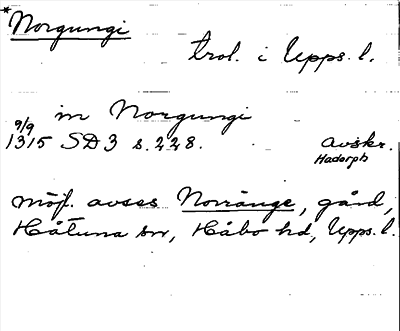 *Norgungi
trol. i Upps. l.
in Norgungi
9/9
1315 SD3 s. 228. avskr.
Hadorph
möjl. avses Norränge, gård,
Håtuna sn, Håbo hd, Upps. l.